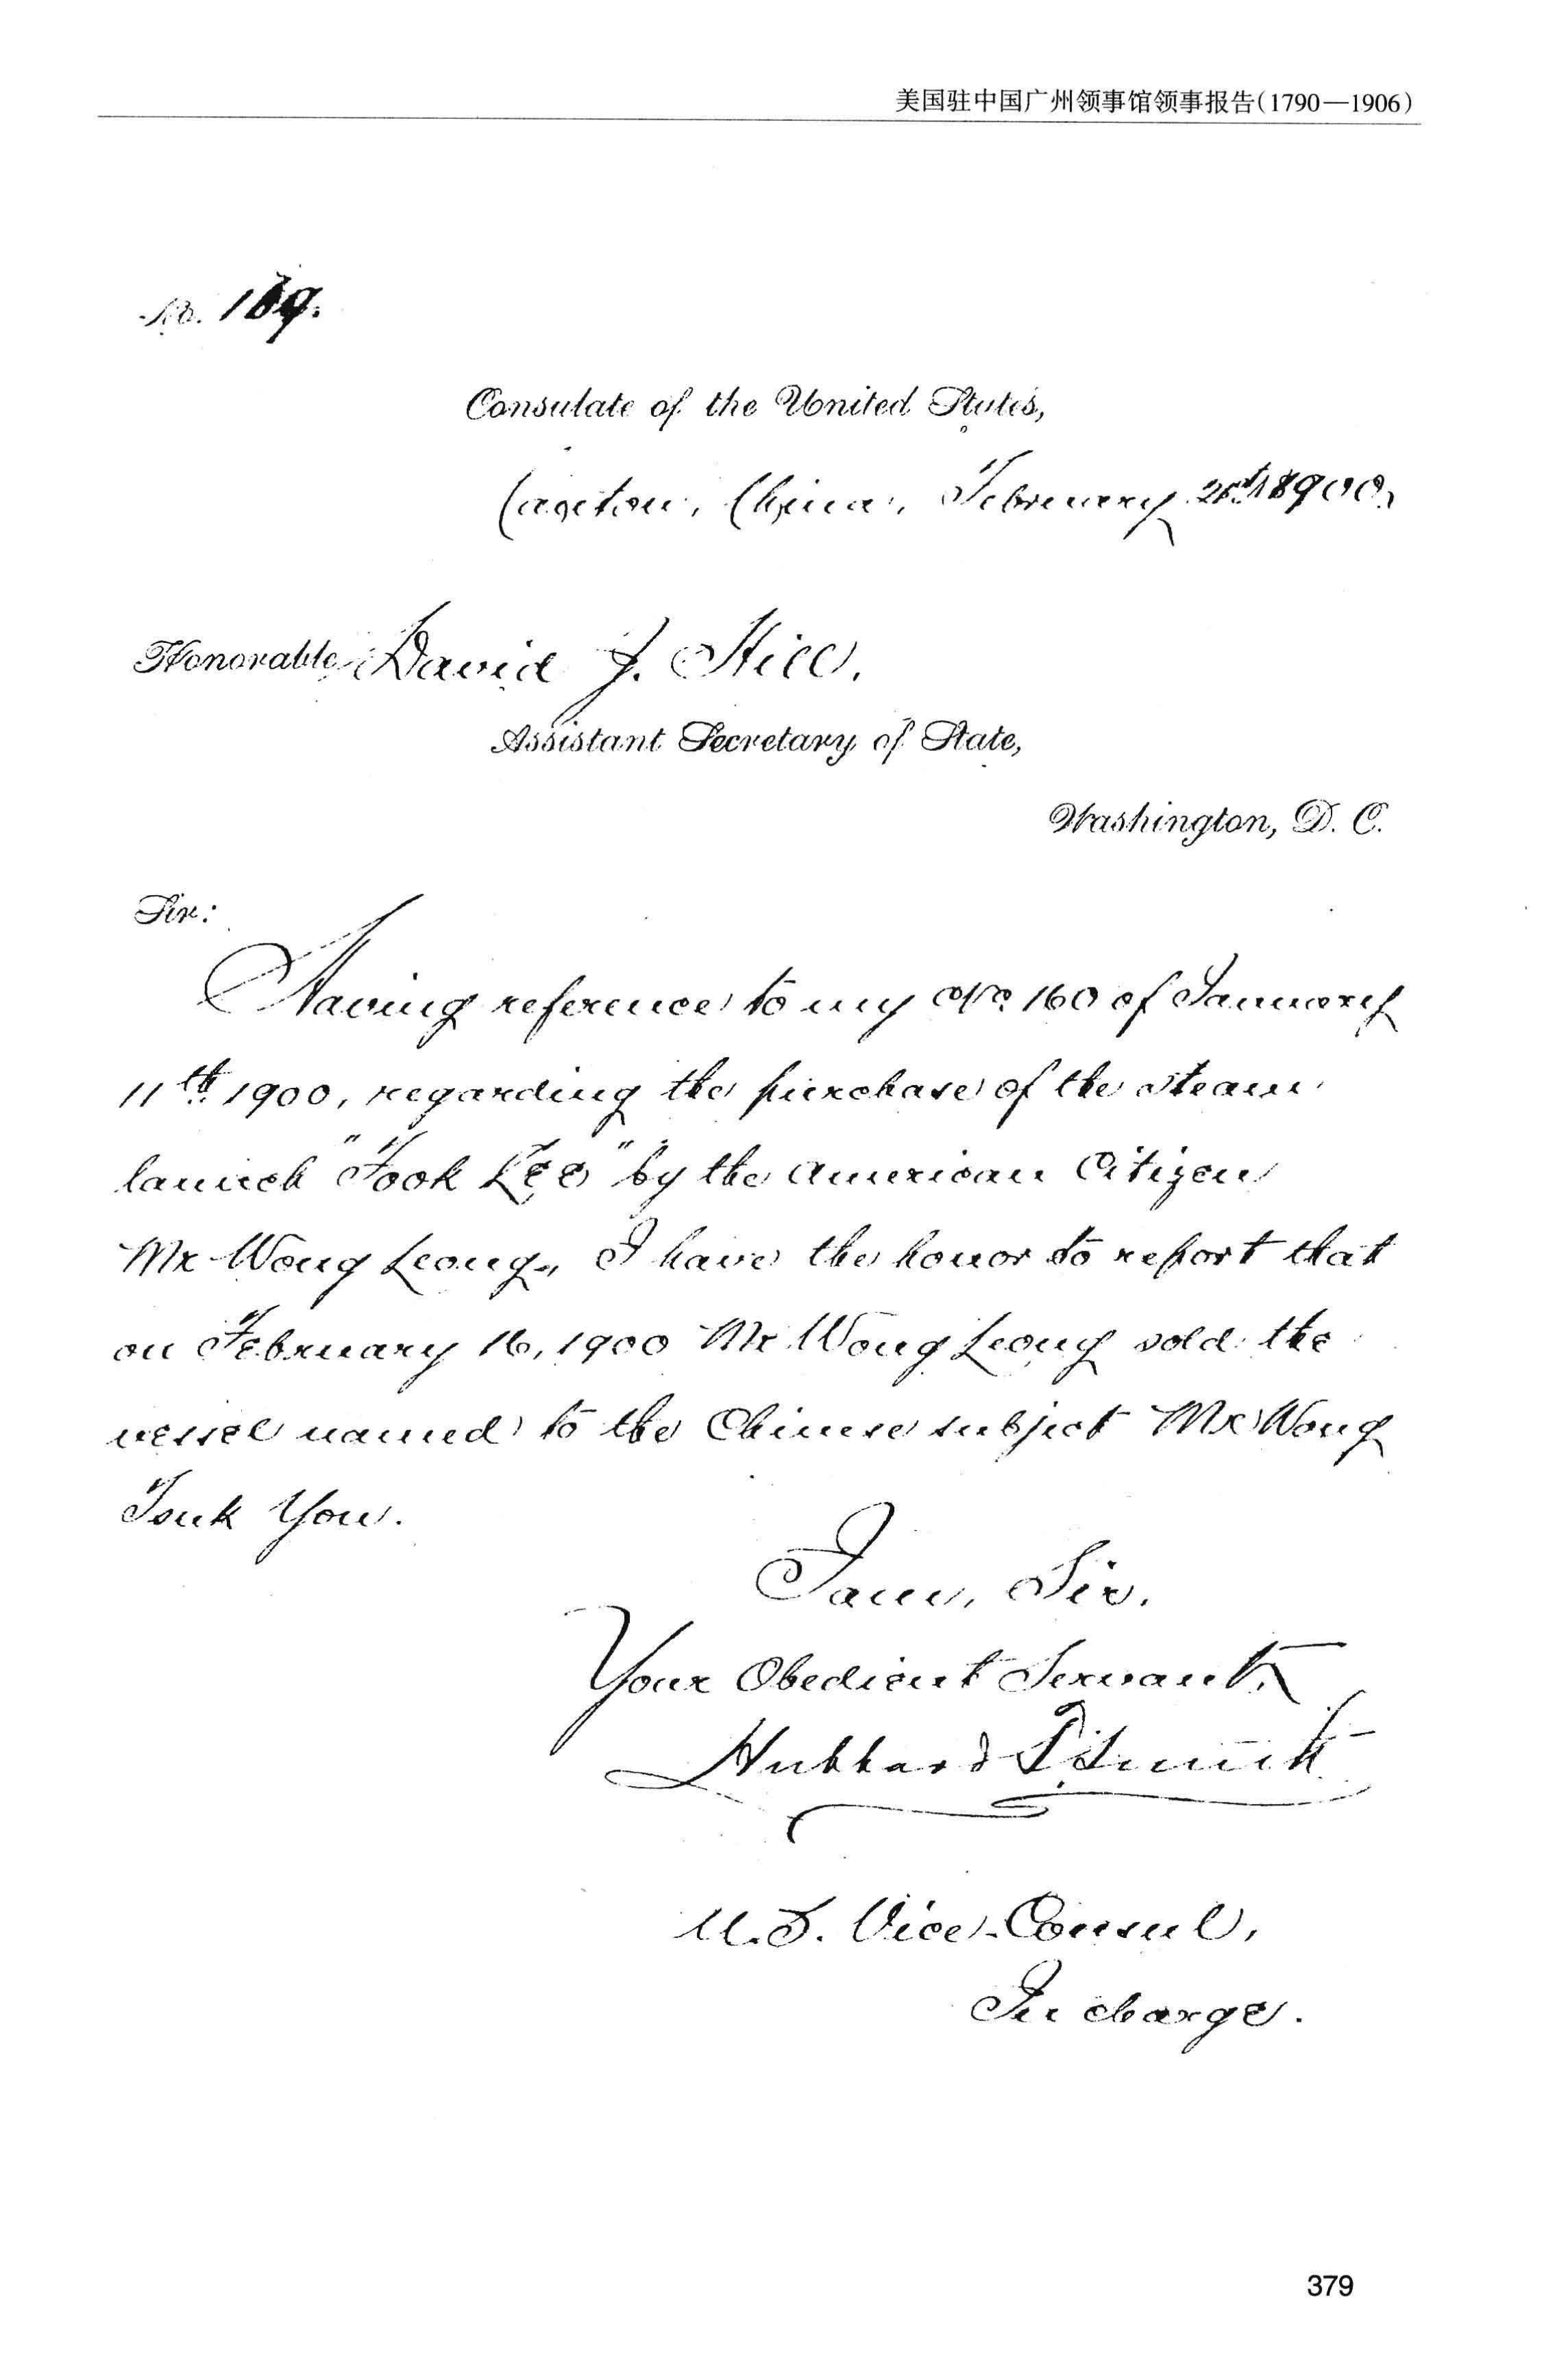 美国驻中国广州领事馆领事报告(1790—1906)
No. 169.
Consulate of the United States,
Canton, China, February 1900,
Honorable David J. Hill,
Assistant Secretary of State,
Washington, D. C.
Sir:
Having reference to my No 160 of January
11th 1900, regarding the purchase of the steam
launch "Fook Lee" by the American Citizen
Mr Wong Leong, I have the honor to report that
on February 16, 1900 Mr Wong Leong sold the
vessel named to the Chinese subject Mr Wong
Tsuk You.
I am, Sir,
Your Obedient Servant,
Hubbard T. Smith
U. S. Vice-Consul,
In charge.
379